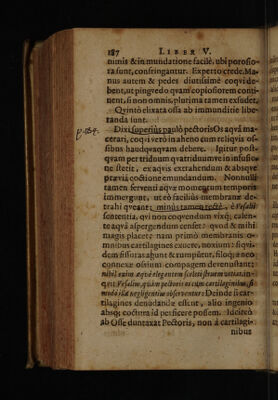 187 LIBER V.
nimis & in mundatione facilè. ubi porosio-
ra sunt, confringantur. Experto crede. Ma-
nus autem & pedes diutissimè coquide-
bent, ut pingvedo qvam copiosiorem conti-
nent, si non omnis, plurima tamen exsudet.
Qvintò elixata ossa ab immunditie libe-
randa sunt.
p. 184.
Dixi superius paulò pectoris Os aqvâ ma-
cerari, coqui verò in aheno cum reliqvis os-
sibus haudqvaqvam debere. Igitur post-
qvam per triduum qvatriduumve in infusio-
ne stetit, ex aqvis extrahendum & absqve
præviâ coctione emundandum. Nonnulli
tamen ferventi aqvæ momentum temporis
immergunt, ut eò facilius membranæ de-
trahi qveant; minùs tamen rectè, è Vesalii
sententia, qvi non coqvendum vixq; calen-
te aqvâ aspergendum censet: qvod & mihi
magis placet: nam primò membranis o-
mnibus cartilagines exuere, noxium: siqvi-
dem fissuras agunt & rumpuntur, filoq; à neo
connexæ ossium compagem devenustant:
nihil enim æqvè elegantem sceleti struem vitiat, in-
qvit Vesalius, qvàm pectoris os cum cartilaginibus, si
modò illæ negligentius observentur: Deinde si car-
tilagines denudandæ essent, alio ingenio
absq; coctura id perficere possem. Idcircò
ab Osse duntaxat Pectoris, non à cartilagi-
nibus